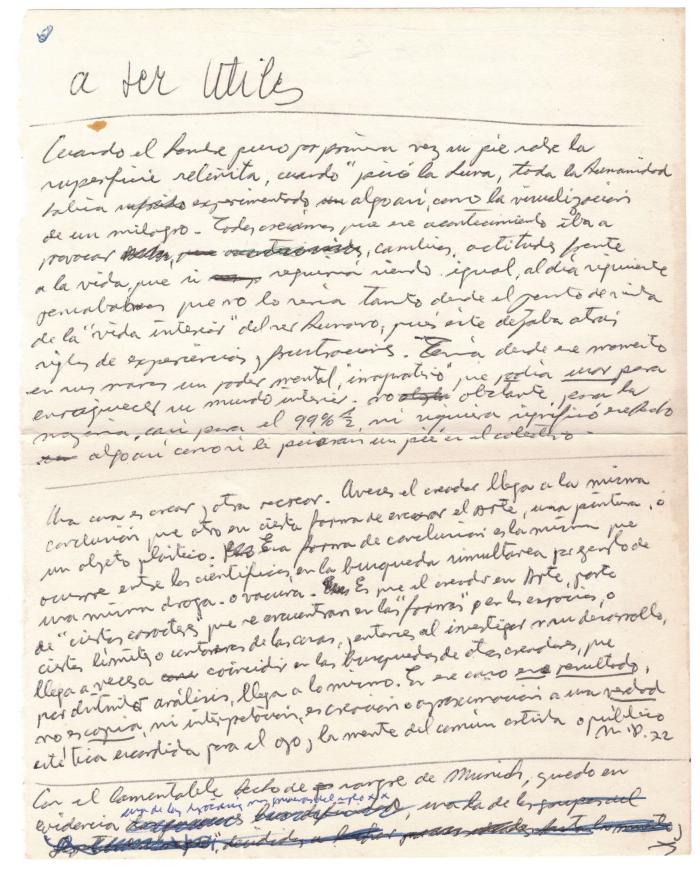 a ser Utiles
Cuando el hombre puso por primera vez un pie sobre la
superficie selenita, cuando "pisó la luna, toda la humanidad
había experimentado algo así, como la visualización
de un milagro. Todos creíamos que ese acontecimiento iba a
provocar cambios, actitudes frente
a la vida, que ni seguiría siendo igual, al día siguiente
pensabamos que no lo sería tanto desde el punto de vista
de la "vida interior" del ser humano, pués éste dejaba atrás
siglos de experiencias y frustraciones. Tenía desde ese momento
en sus manos un poder mental, que podía usar para
enriquecer su mundo interior. no obstante, para la
mayoria, casi para el 99% ½, ni siquiera significó
algo así como si le pisaran un pié en el colectivo.
Una cosa es crear y otra recrear. A veces el creador llega a la misma
conclusión que otro en cierta forma de encarar el Arte, una pintura, ó
un objeto plástico. Esa forma de conclusión es la misma que
ocurre entre los científicos, en la busqueda simultanea por ejemplo de
una misma droga o vacuna. Es que el creador en Arte, parte
de "ciertos caracteres" que se encuentran en las "formas" en los espacios, o
ciertos límites o contornos de las cosas, y entonces al investigar en su desarrollo,
llega a veces a coincidir en las busquedas de otros creadores, que
por distintos análisis, llega a lo mismo. En ese caso ese resultado,
no es copia, ni interpretación, es creación o aproximación a una verdad
estética escondida para el ojo y la mente del común artista o público
Con el lamentable hecho de sangre de Munich, quedo en
evidencia una de las